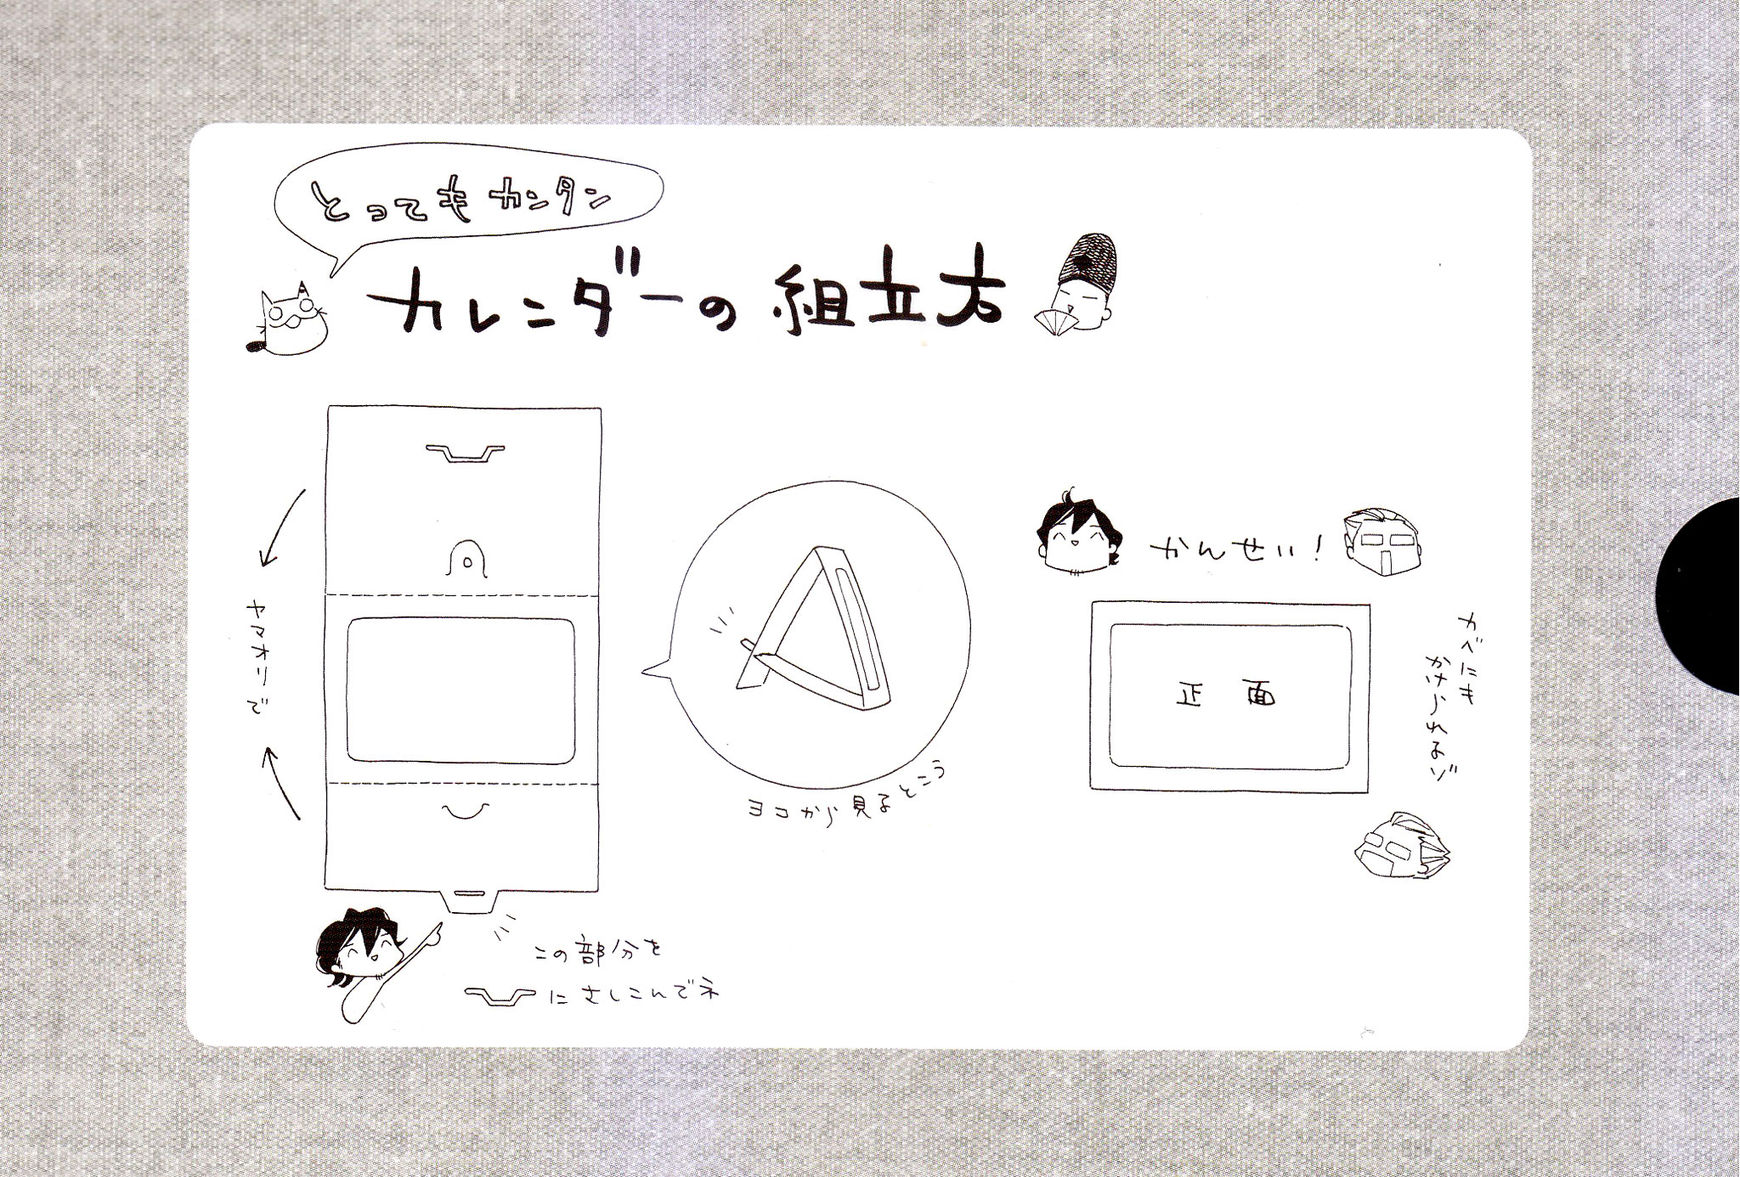 とってもカンタン
カレンダーの組立方
ヤマオリで
ヨコから見るところ
この部分を
にさしこんでネ
かんせい!
正面
カベにも
かけられるゾ